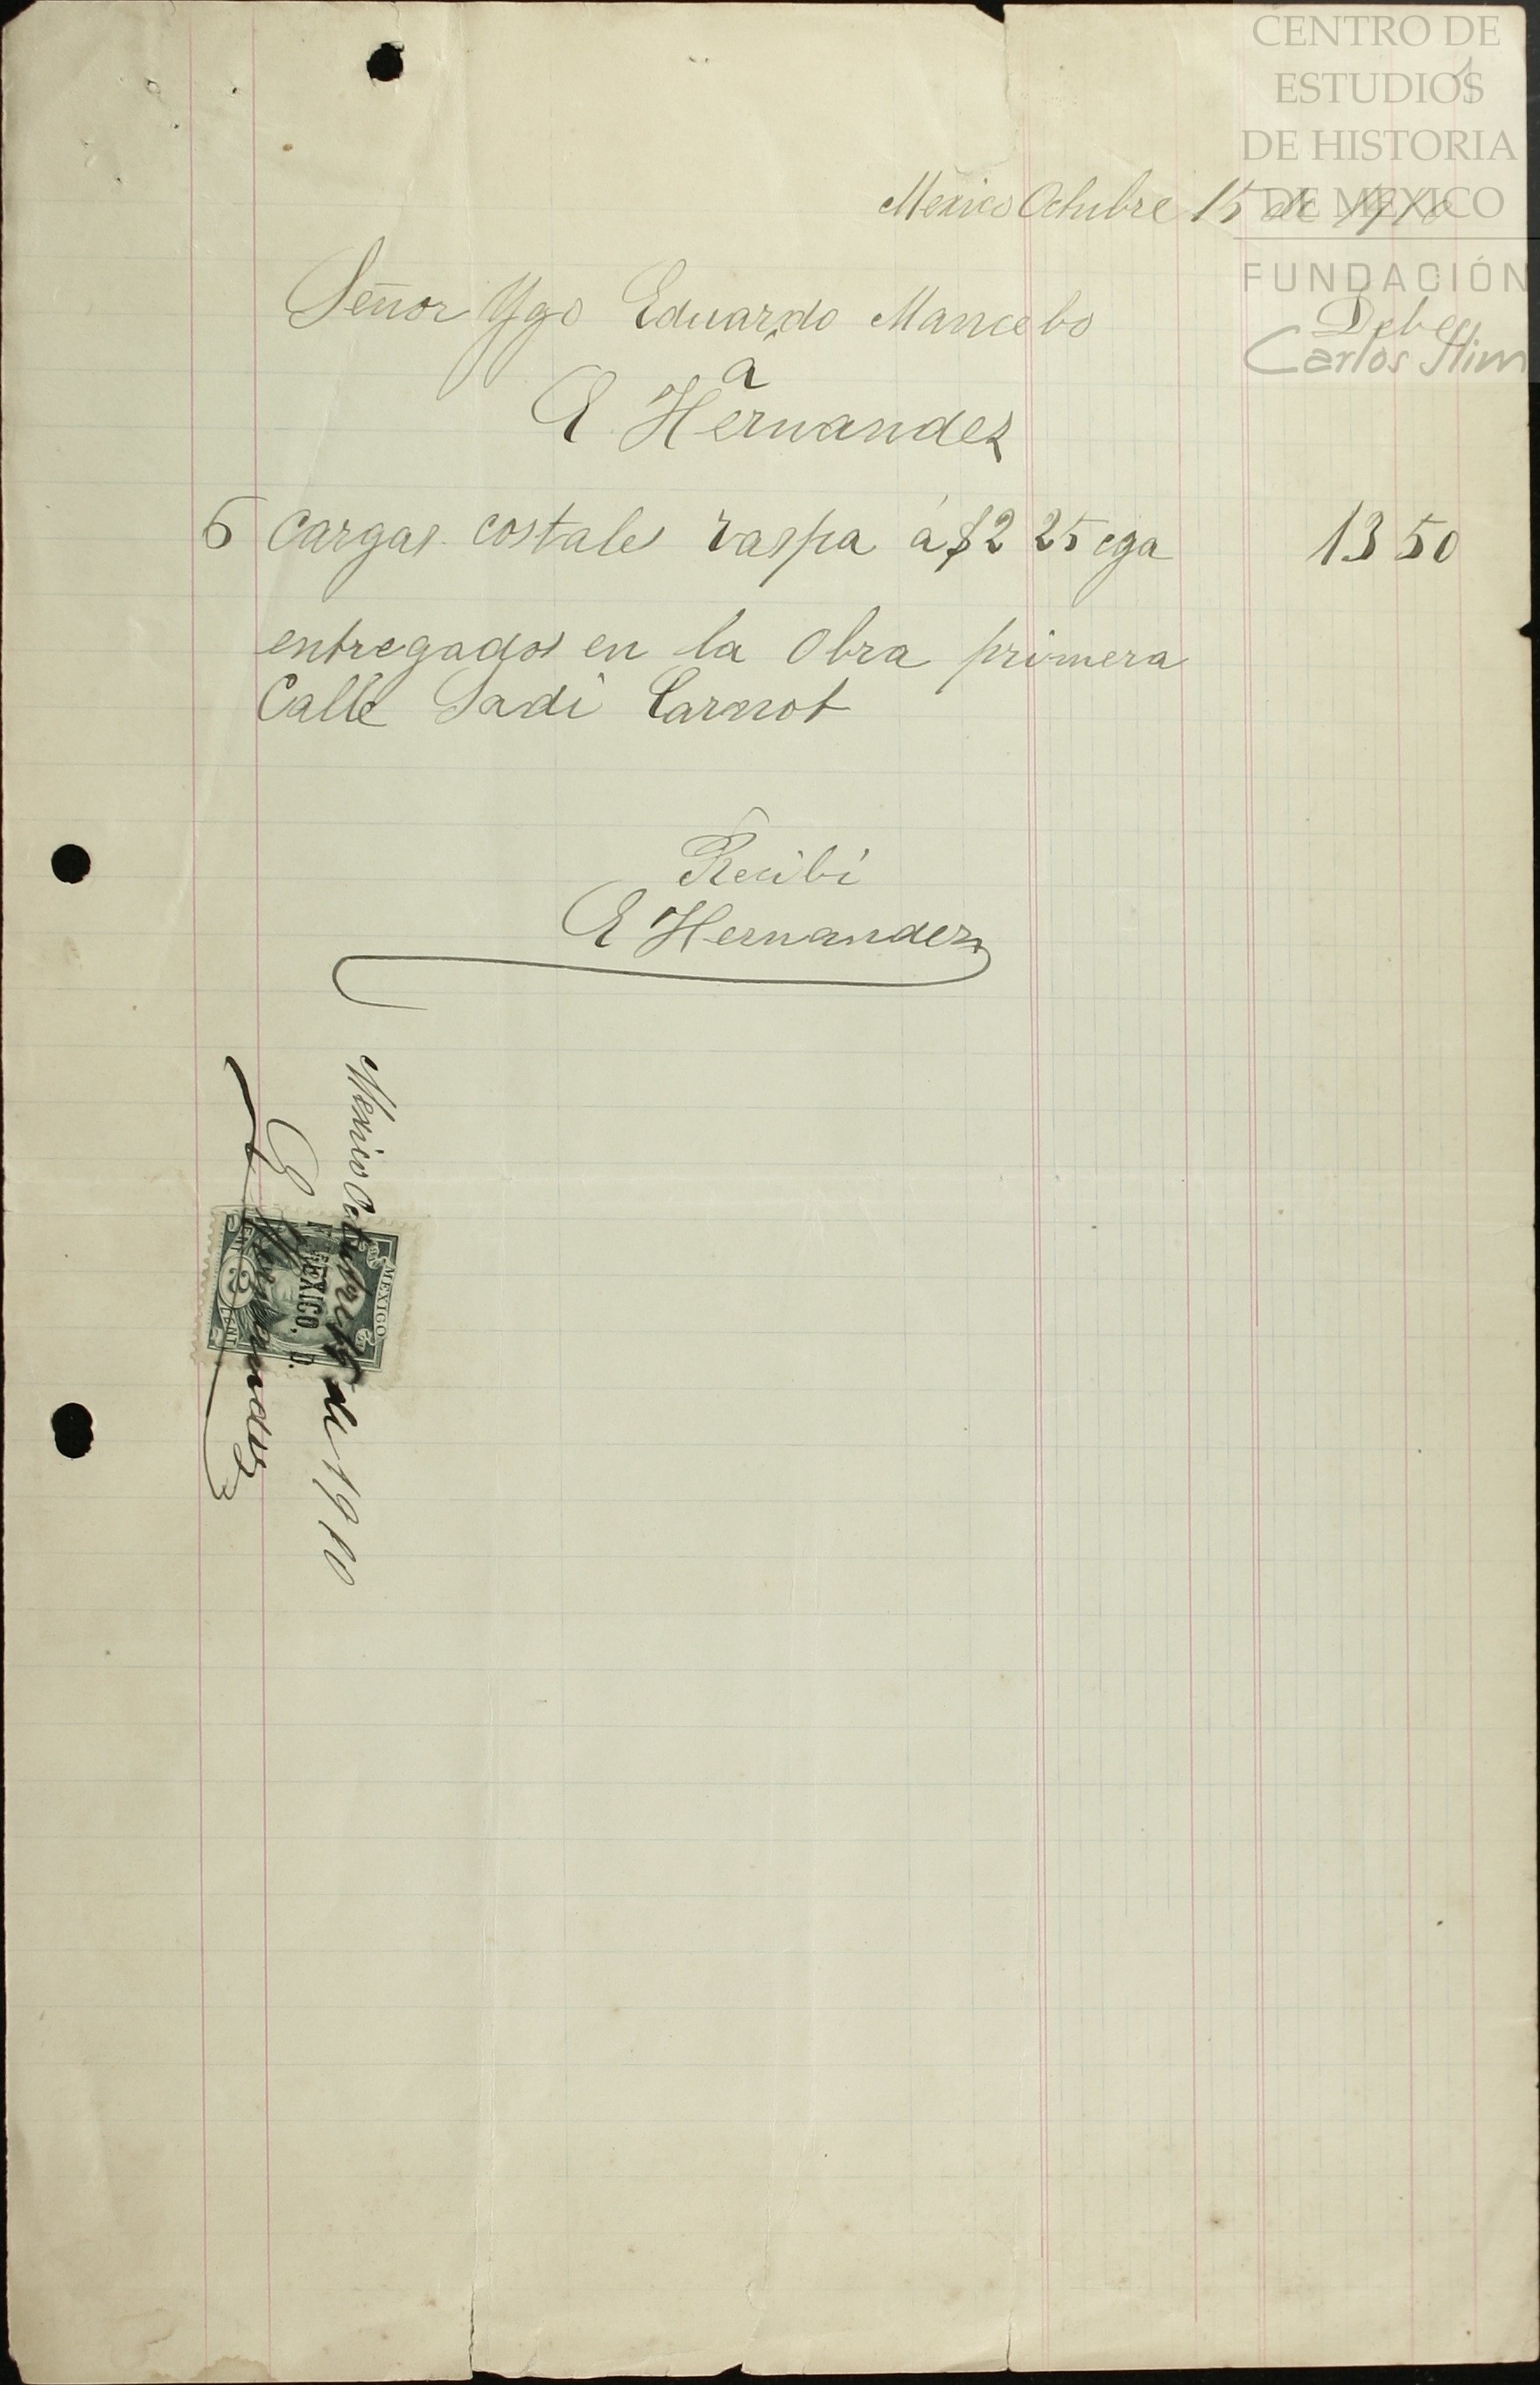 CENTRO DE
ESTUDIOS
DE HISTORIA
DE MEXICO
FUNDACIÓN
Carlos Slim
México Octubre 15 de 1910
Señor Ygo Eduardo Mancebo Debe
a
E Hernandez
6 cargas costales raspa á $2 25 cga 13 50
entregados en la obra primera
Calle Sadi Carnot
Recibi
E Hernandez
Mexico Octubre 15 de 1910
E Hernandez
MEXICO
MEXICO. D.
2